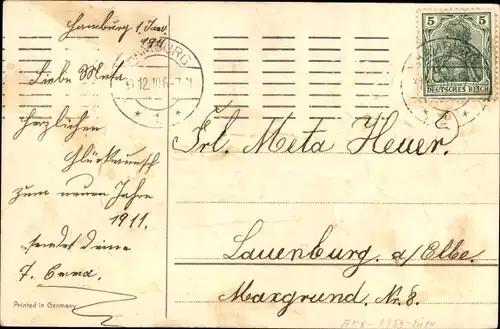 Hamburg 1 Jan.
1911
HAMBURG
31.12.10. 6-7 N
5 5
DEUTSCHES REICH
Liebe Meta
herzlichen
Glückwunsch
zum neuen Jahre
1911.
sendet deine
T. Erna.
Frl. Meta Heuer.
Lauenburg a/Elbe.
Maxgrund. Nr. 8.
Printed in Germany